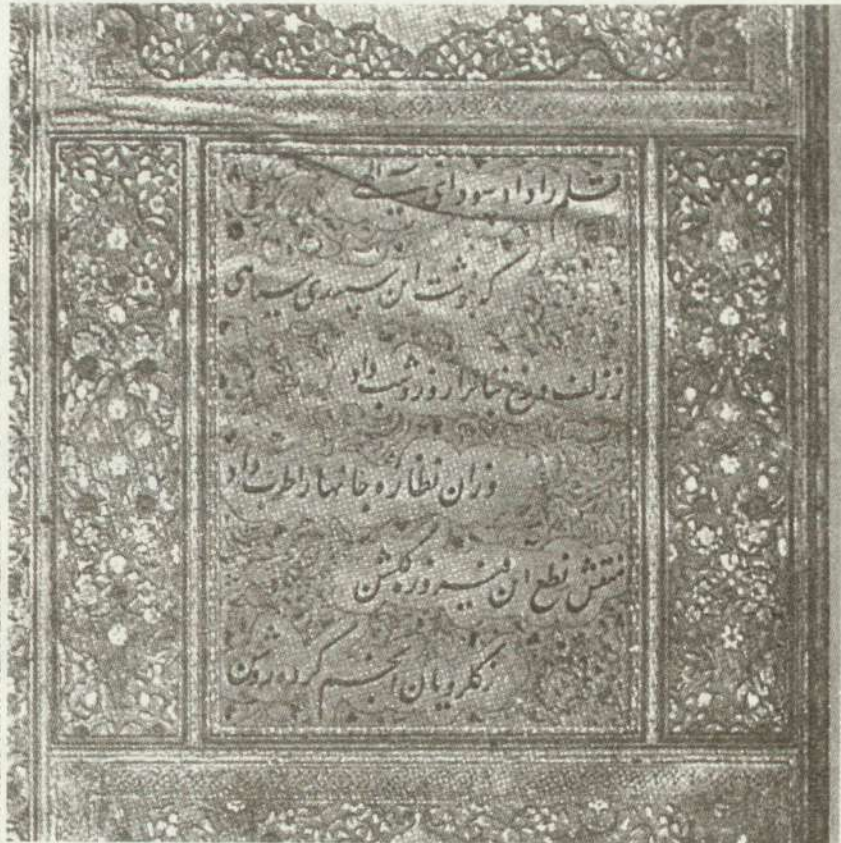 قلم را داد سودای
که نوشت این سپیدی سیاهی
ز زلف و رخ جهانرا روز و شب داد
وزان نظاره جانها را طرب داد
منقش نطع این فیروز گلشن
ز گلرویان انجم کرده روشن